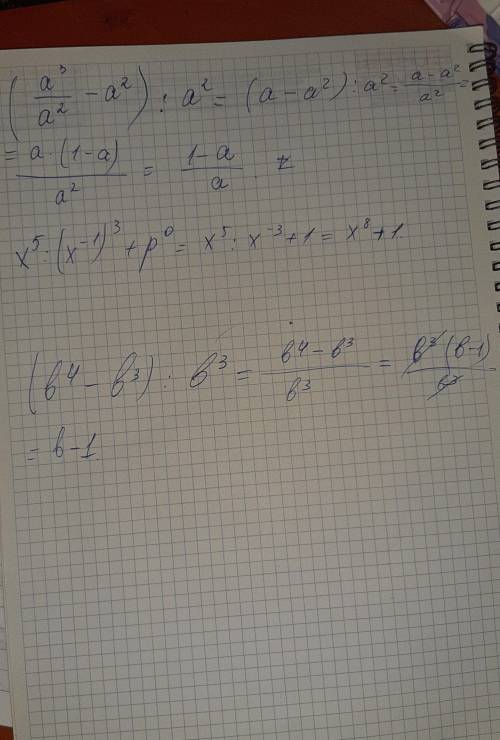 (a³/a² - a²) : a² = (a - a²) : a² = (a - a²)/a² =
= a · (1 - a)/a² = (1 - a)/a
x⁵ : (x⁻¹)³ + p⁰ = x⁵ : x⁻³ + 1 = x⁸ + 1
(b⁴ - b³) : b³ = (b⁴ - b³)/b³ = b³(b - 1)/b³
= b - 1.